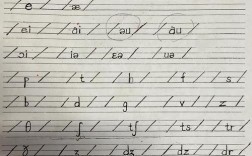 / e / / æ /
/ ei / / ai / / əu / / au /
/ ɔi / / iə / / εə / / uə /
/ p / / t / / k / / f / / s /
/ b / / d / / g / / v / / z /
/ θ / / ʃ / / tʃ / / ts / / tr /
/ ð / / ʒ / / dʒ / / dz / / dr /